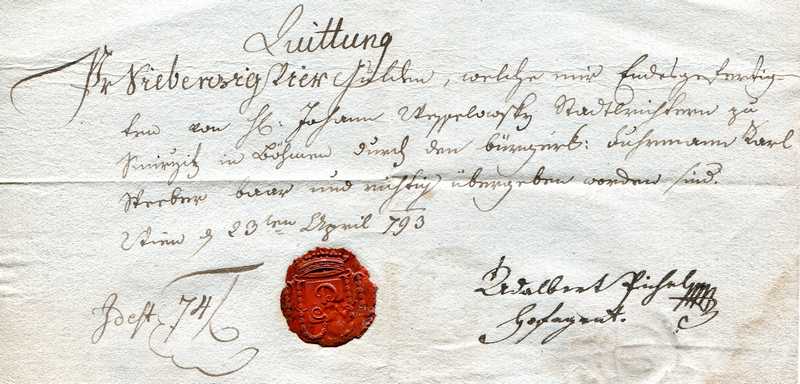 Quittung
Pr Siebenzig Vier Gulden, welche mir Endesgefertig-
ten von H: Johann Wesselowsky Stadtrichtern zu
in Böhmen durch den bürgerl: Fuhrmann Karl
Steeber baar und richtig übergeben worden sind.
Wien d 23ten April 793
Idest 74 f
Adalbert Pichel
Hofagent.